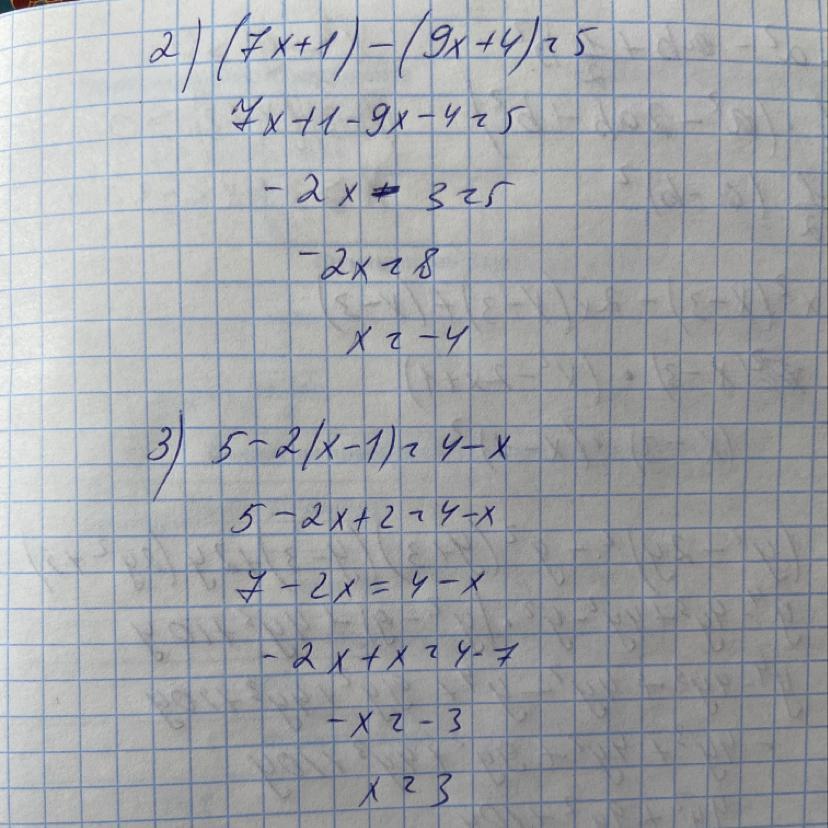 2) (7x+1)-(9x+4)=5
7x+1-9x-4=5
-2x-3=5
-2x=8
x=-4
3) 5-2(x-1)=4-x
5-2x+2=4-x
7-2x=4-x
-2x+x=4-7
-x=-3
x=3